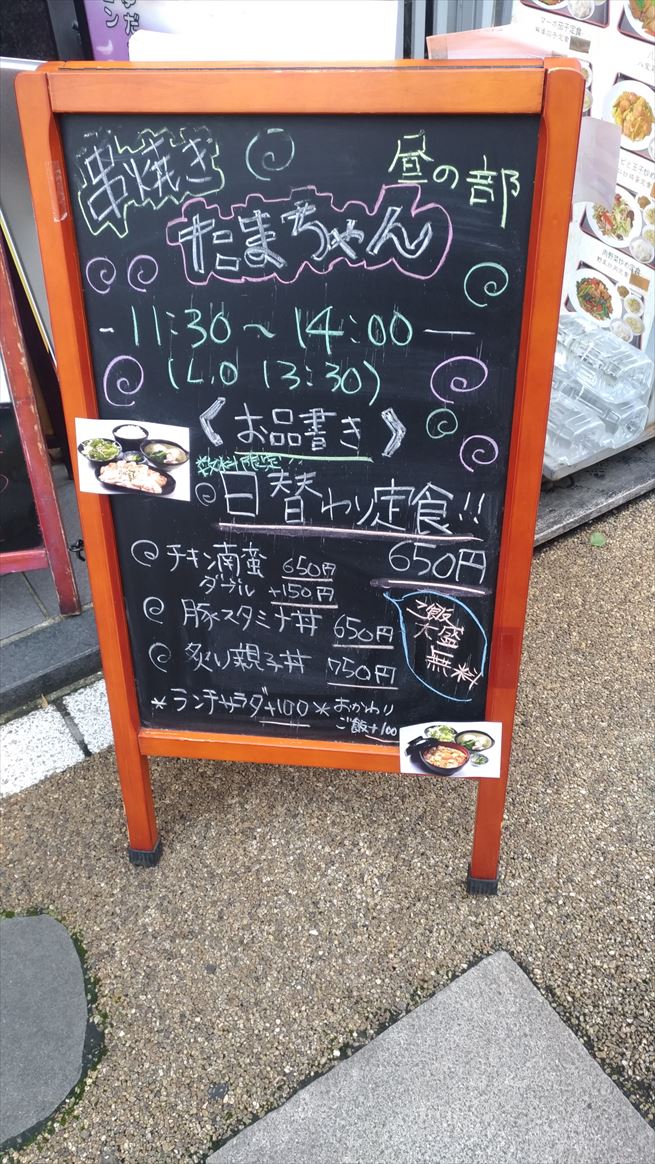 串焼き
昼の部
たまちゃん
-11:30～14:00―
(L.O 13:30)
《お品書き》
数料限定!!
日替わり定食!!
650円
チキン南蛮 650円
ダブル +150円
豚スタミナ丼 650円
炙り親子丼 750円
ご飯
大盛
無料
*ランチサラダ+100*
おかわり
ご飯+100
マーボ茄子定食